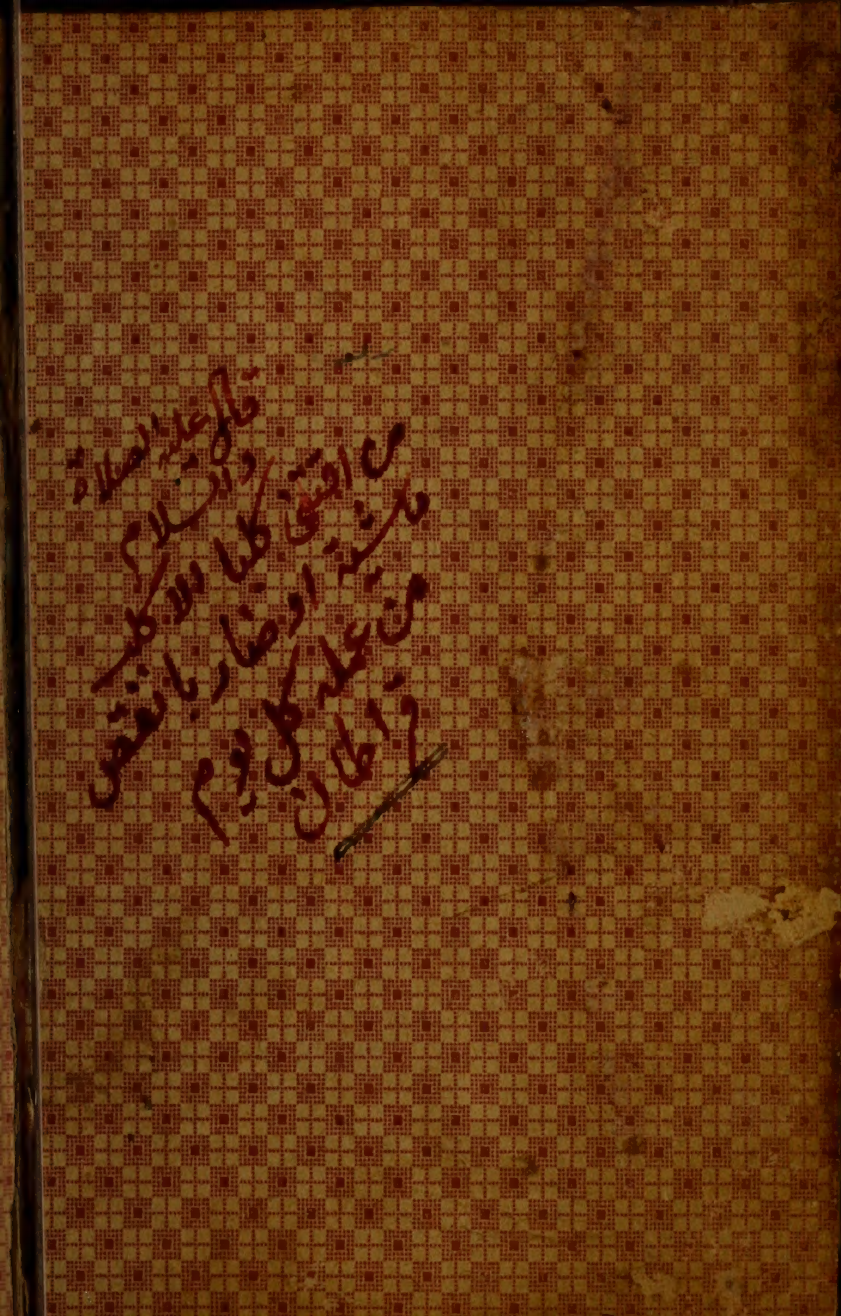 قال عليه الصلاة
والسلام
من اقتنى كلبا الا كلب
ماشية او ضاريا نقص
من عمله كل يوم
قراطان